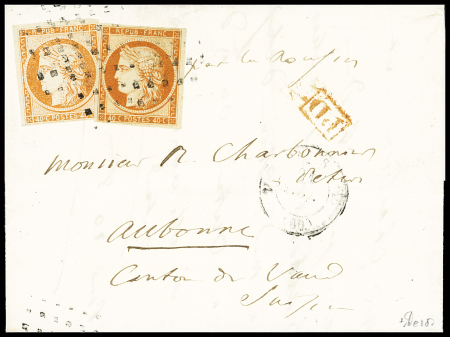 REPUB. FRANC.
40 C. POSTES 40 C.
REPUB. FRANC.
40 C. POSTES 40 C.
par les Rousses
PD
Monsieur R. Charbonnier
Aubonne
Canton de Vaud
Suisse